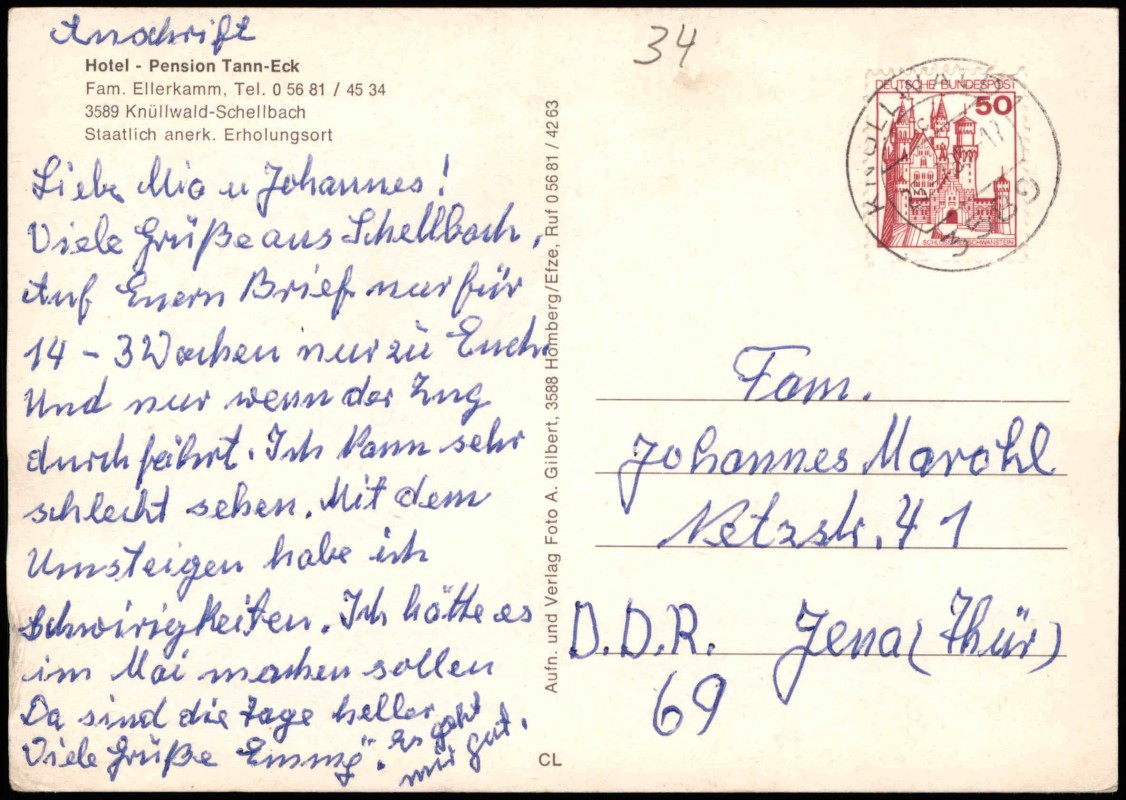 Anschrift
Hotel - Pension Tann-Eck
Fam. Ellerkamm, Tel. 0 56 81 / 45 34
3589 Knüllwald-Schellbach
Staatlich anerk. Erholungsort
Liebe Mia u Johannes!
Viele Grüße aus Schellbach,
Auf Euern Brief nur für
14 - 3 Wochen nur zu Euch.
Und nur wenn der Zug
durchfährt. Ich kann sehr
schlecht sehen. Mit dem
Umsteigen habe ich
Schwirigkeiten. Ich hätte es
im Mai machen sollen
Da sind die Tage heller
Viele Grüße Emmy. Es geht
mir gut.
Aufn. und Verlag Foto A. Gilbert, 3588 Homberg/Efze, Ruf 0 56 81 / 42 63
CL
34
DEUTSCHE BUNDESPOST
50
KNÜLLWALD
3589
Fam.
Johannes Marohl
Netzstr. 41
D.D.R. Jena (Thür)
69